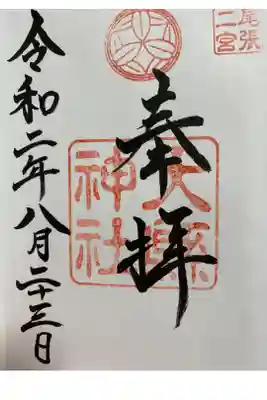 尾張
二宮
奉拝
大縣
神社
令和二年八月二十三日